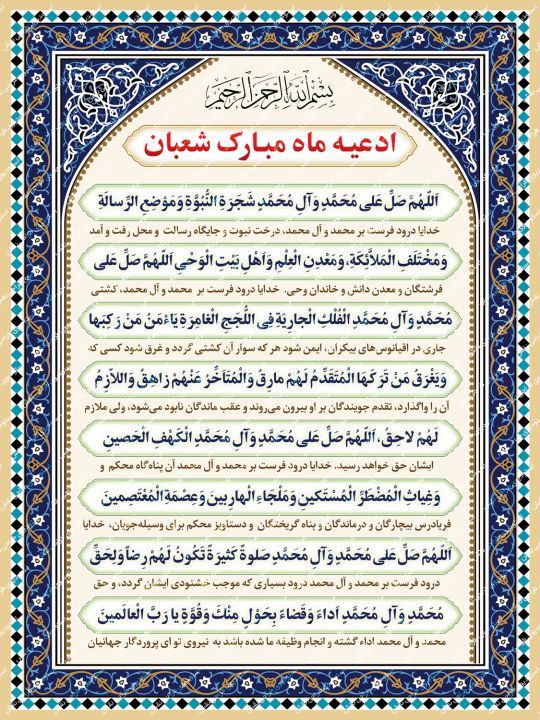 بسم الله الرحمن الرحیم
ادعیه ماه مبارک شعبان
اَللّهُمَّ صَلِّ عَلى مُحَمَّدٍ وَآلِ مُحَمَّدٍ شَجَرَةِ النُّبُوَّةِ وَمَوْضِعِ الرِّسالَةِ
خدایا درود فرست بر محمد و آل محمد، درخت نبوت و جایگاه رسالت و محل رفت و آمد
وَمُخْتَلَفِ الْمَلاَّئِكَةِ، وَمَعْدِنِ الْعِلْمِ وَاَهْلِ بَيْتِ الْوَحْىِ اَللّهُمَّ صَلِّ عَلى
فرشتگان و معدن دانش و خاندان وحی. خدایا درود فرست بر محمد و آل محمد، کشتی
مُحَمَّدٍ وَآلِ مُحَمَّدٍ الْفُلْكِ الْجارِيَةِ فِى اللُّجَجِ الْغامِرَةِ يَاْءمَنُ مَنْ رَكِبَها
جاری در اقیانوس‌های بیکران، ایمن شود هر که سوار آن کشتی گردد و غرق شود کسی که
وَيَغْرَقُ مَنْ تَرَكَهَا الْمُتَقَدِّمُ لَهُمْ مارِقٌ وَالْمُتَاَخِّرُ عَنْهُمْ زاهِقٌ وَاللاّزِمُ
آن را واگذارد، تقدم جویندگان بر او بیرون می‌روند و عقب ماندگان نابود می‌شود، ولی ملازم
لَهُمْ لاحِقٌ، اَللّهُمَّ صَلِّ عَلى مُحَمَّدٍ وَآلِ مُحَمَّدٍ الْكَهْفِ الْحَصينِ
ایشان حق خواهد رسید. خدایا درود فرست بر محمد و آل محمد آن پناه‌گاه محکم و
وَغِياثِ الْمُضْطَرِّ الْمُسْتَكينِ وَمَلْجَاءِ الْهارِبينَ وَعِصْمَةِ الْمُعْتَصِمينَ
فریادرس بیچارگان و درماندگان و پناه گریختگان و دستاویز محکم برای وسیله‌جویان، خدایا
اَللّهُمَّ صَلِّ عَلى مُحَمَّدٍ وَآلِ مُحَمَّدٍ صَلوةً كَثيرَةً تَكُونُ لَهُمْ رِضاً وَلِحَقِّ
درود فرست بر محمد و آل محمد درود بسیاری که موجب خشنودی ایشان گردد، و حق
مُحَمَّدٍ وَآلِ مُحَمَّدٍ اَداءً وَقَضاءً بِحَوْلٍ مِنْكَ وَقُوَّةٍ يا رَبَّ الْعالَمينَ
محمد و آل محمد اداء گشته و انجام وظیفه ما شده باشد به نیروی تو ای پروردگار جهانیان